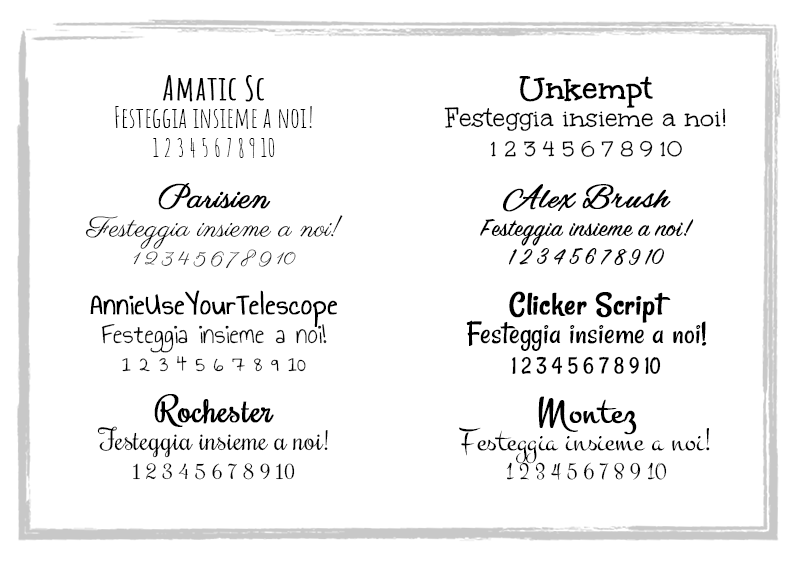 Amatic Sc
Festeggia insieme a noi!
1 2 3 4 5 6 7 8 9 10
Unkempt
Festeggia insieme a noi!
1 2 3 4 5 6 7 8 9 10
Parisien
Festeggia insieme a noi!
1 2 3 4 5 6 7 8 9 10
Alex Brush
Festeggia insieme a noi!
1 2 3 4 5 6 7 8 9 10
AnnieUseYourTelescope
Festeggia insieme a noi!
1 2 3 4 5 6 7 8 9 10
Clicker Script
Festeggia insieme a noi!
1 2 3 4 5 6 7 8 9 10
Rochester
Festeggia insieme a noi!
1 2 3 4 5 6 7 8 9 10
Montez
Festeggia insieme a noi!
1 2 3 4 5 6 7 8 9 10